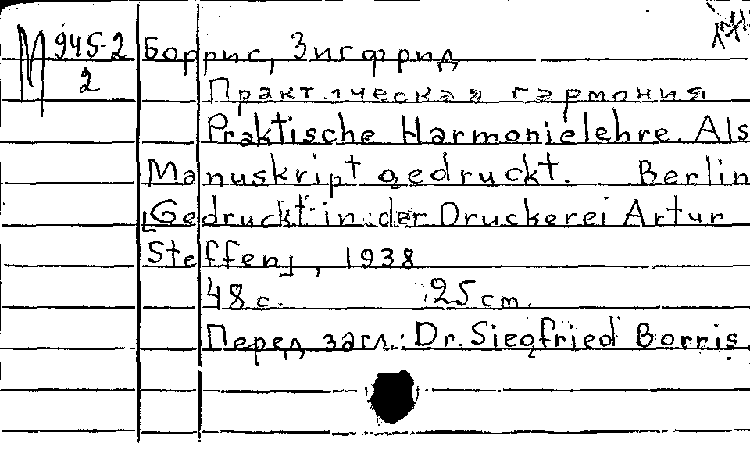 М 945-2 Боррис, Зигфрид
2
Практическая гармония
Praktische Harmonielehre. Als
Manuskript gedruckt. Berlin
[Gedruckt in der Druckerei Artur
Steffen], 1938
48 с. 25 cm.
Перед загл.: Dr. Siegfried Borris.